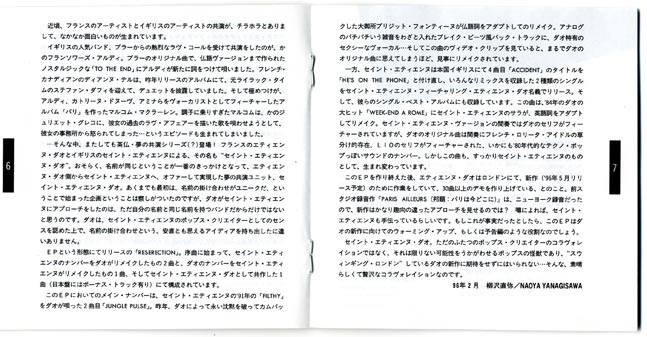 近頃、フランスのアーティストとイギリスのアーティストの共演が、チラホラとありま
して、なかなか面白いものが生まれています。
イギリスの人気バンド、ブラーからの熱烈なラヴ・コールを受けて共演をしたのが、か
のフランソワーズ・アルディ。ブラーのオリジナル曲で、仏語ヴァージョンまで作られた
ノスタルジックな「TO THE END」にアルディが新たに詞をつけて唄いました。フレンチ・
カナディアンのディアンヌ・テルは、昨年リリースのアルバムにて、元ライラック・タイ
ムのステファン・ダフィを迎えて、デュエットを披露していました。そして極めつけが、
アルディ、カトリーヌ・ドヌーヴ、アミナらをヴォーカリストとしてフィーチャーしたア
ルバム「パリ」を作ったマルコム・マクラーレン。調子に乗りすぎたマルコムは、かのジ
ュリエット・グレコに、彼女の過去のラヴ・アフェアーを描いた歌を唄わせようとして、
彼女の事務所から怒られてしまった…というエピソードも生まれてしまいました。
…そんな中、またしても英仏・夢の共演シリーズ(?)登場! フランスのエティエン
ヌ・ダオとイギリスのセイント・エティエンヌによる、その名も"セイント・エティエン
ヌ・ダオ"。おそらく、名前が同じということが一番のきっかけとなって、エティエン
ヌ・ダオ側からセイント・エティエンヌへ、オファーして実現した夢の共演ユニット、セ
イント・エティエンヌ・ダオ。あくまでも最初は、名前の掛け合せがユニークだ、という
ことで始まった企画ということは察しがついたのですが、ダオがセイント・エティエン
ヌにアプローチをしたのは、ただ自分の名前と同じ名前を持つバンドだからだけではない
と思うのです。ダオは、セイント・エティエンヌのポップス・クリエイターとしてのセン
スを認めた上で、名前の掛け合わせという、安直とも思えるアイディアを持ち出したに違
いありません。
EPという形態にてリリースの「RESERECTION」。序曲に始まって、セイント・エティエ
ンヌのナンバーをダオがリメイクしたもの2曲と、ダオのナンバーをセイント・エティエ
ンヌがリメイクしたもの1曲、そしてセイント・エティエンヌとダオとして共作した1
曲(日本盤にはボーナス・トラック有り)にて構成されています。
このEPにおいてのメイン・ナンバーは、セイント・エティエンヌの'91年の「FILTHY」
をダオが唄った2曲目「JUNGLE PULSE」。昨年、ダオによって永い沈黙を破ってカムバッ
6
クした大御所ブリジット・フォンティーヌが仏語詞をアダプトしてのリメイク。アナログ
のパチパチいう雑音をわざと入れたブレイク・ビーツ風バック・トラックに、ダオ特有の
セクシーなヴォーカル…そしてこの曲のヴィデオ・クリップを見ていると、まるでダオの
オリジナル曲に思えてしまうほど、見事にリメイクされています。
一方、セイント・エティエンヌは本国イギリスにて4曲目「ACCIDENT」のタイトルを
「HE'S ON THE PHONE」と付け直し、いろんなリミックスを収録した2種類のシングル
をセイント・エティエンヌ・フィーチャリング・エティエンヌ・ダオ名義でリリース。そ
して、彼らのシングル・ベスト・アルバムにも収録しています。この曲は、'84年のダオの
大ヒット「WEEK-END A ROME」にセイント・エティエンヌのサラが、英語詞をアダプ
トしてリメイク。セイント・エティエンヌ・ヴァージョンの間奏ではダオのセリフがフィー
チャーされていますが、ダオのオリジナル曲は間奏にフレンチ・ロリータ・アイドルの草
分け的存在、LIOのセリフがフィーチャーされた、いかにも'80年代的なテクノ・ポッ
プっぽいサウンドのナンバー。しかしこの曲も、すっかりセイント・エティエンヌのもの
として、生まれ変わっています。
このEPを作り終えた後、エティエンヌ・ダオはロンドンにて、新作('96年5月リリ
ース予定)のために作業をしていて、30曲以上のデモを作り上げている、とのこと。前ス
タジオ録音作「PARIS AILLEURS(邦題:パリは今どこに)」は、ニューヨーク録音だった
ので、新作はかなり趣向の違ったアプローチを見せるのでは? 噂によれば、セイント・
エティエンヌも手伝っているらしいです。もしこれが事実だったとしたら、このEPはダ
オの新作に向けてのウォーミング・アップ、もしくは予告編のような役割なのでしょう。
セイント・エティエンヌ・ダオ。ただのふたつのポップス・クリエイターのコラヴォレ
イションではなく、それは限りない可能性をうかがわせるポップスの怪獣であり、"スウ
ィンギング・ロンドン"しているダオの新作に期待をせずにはいられない…そんな、素晴
らしくて贅沢なコラヴォレイションなのです。
96年2月 柳沢直弥/NAOYA YANAGISAWA
7